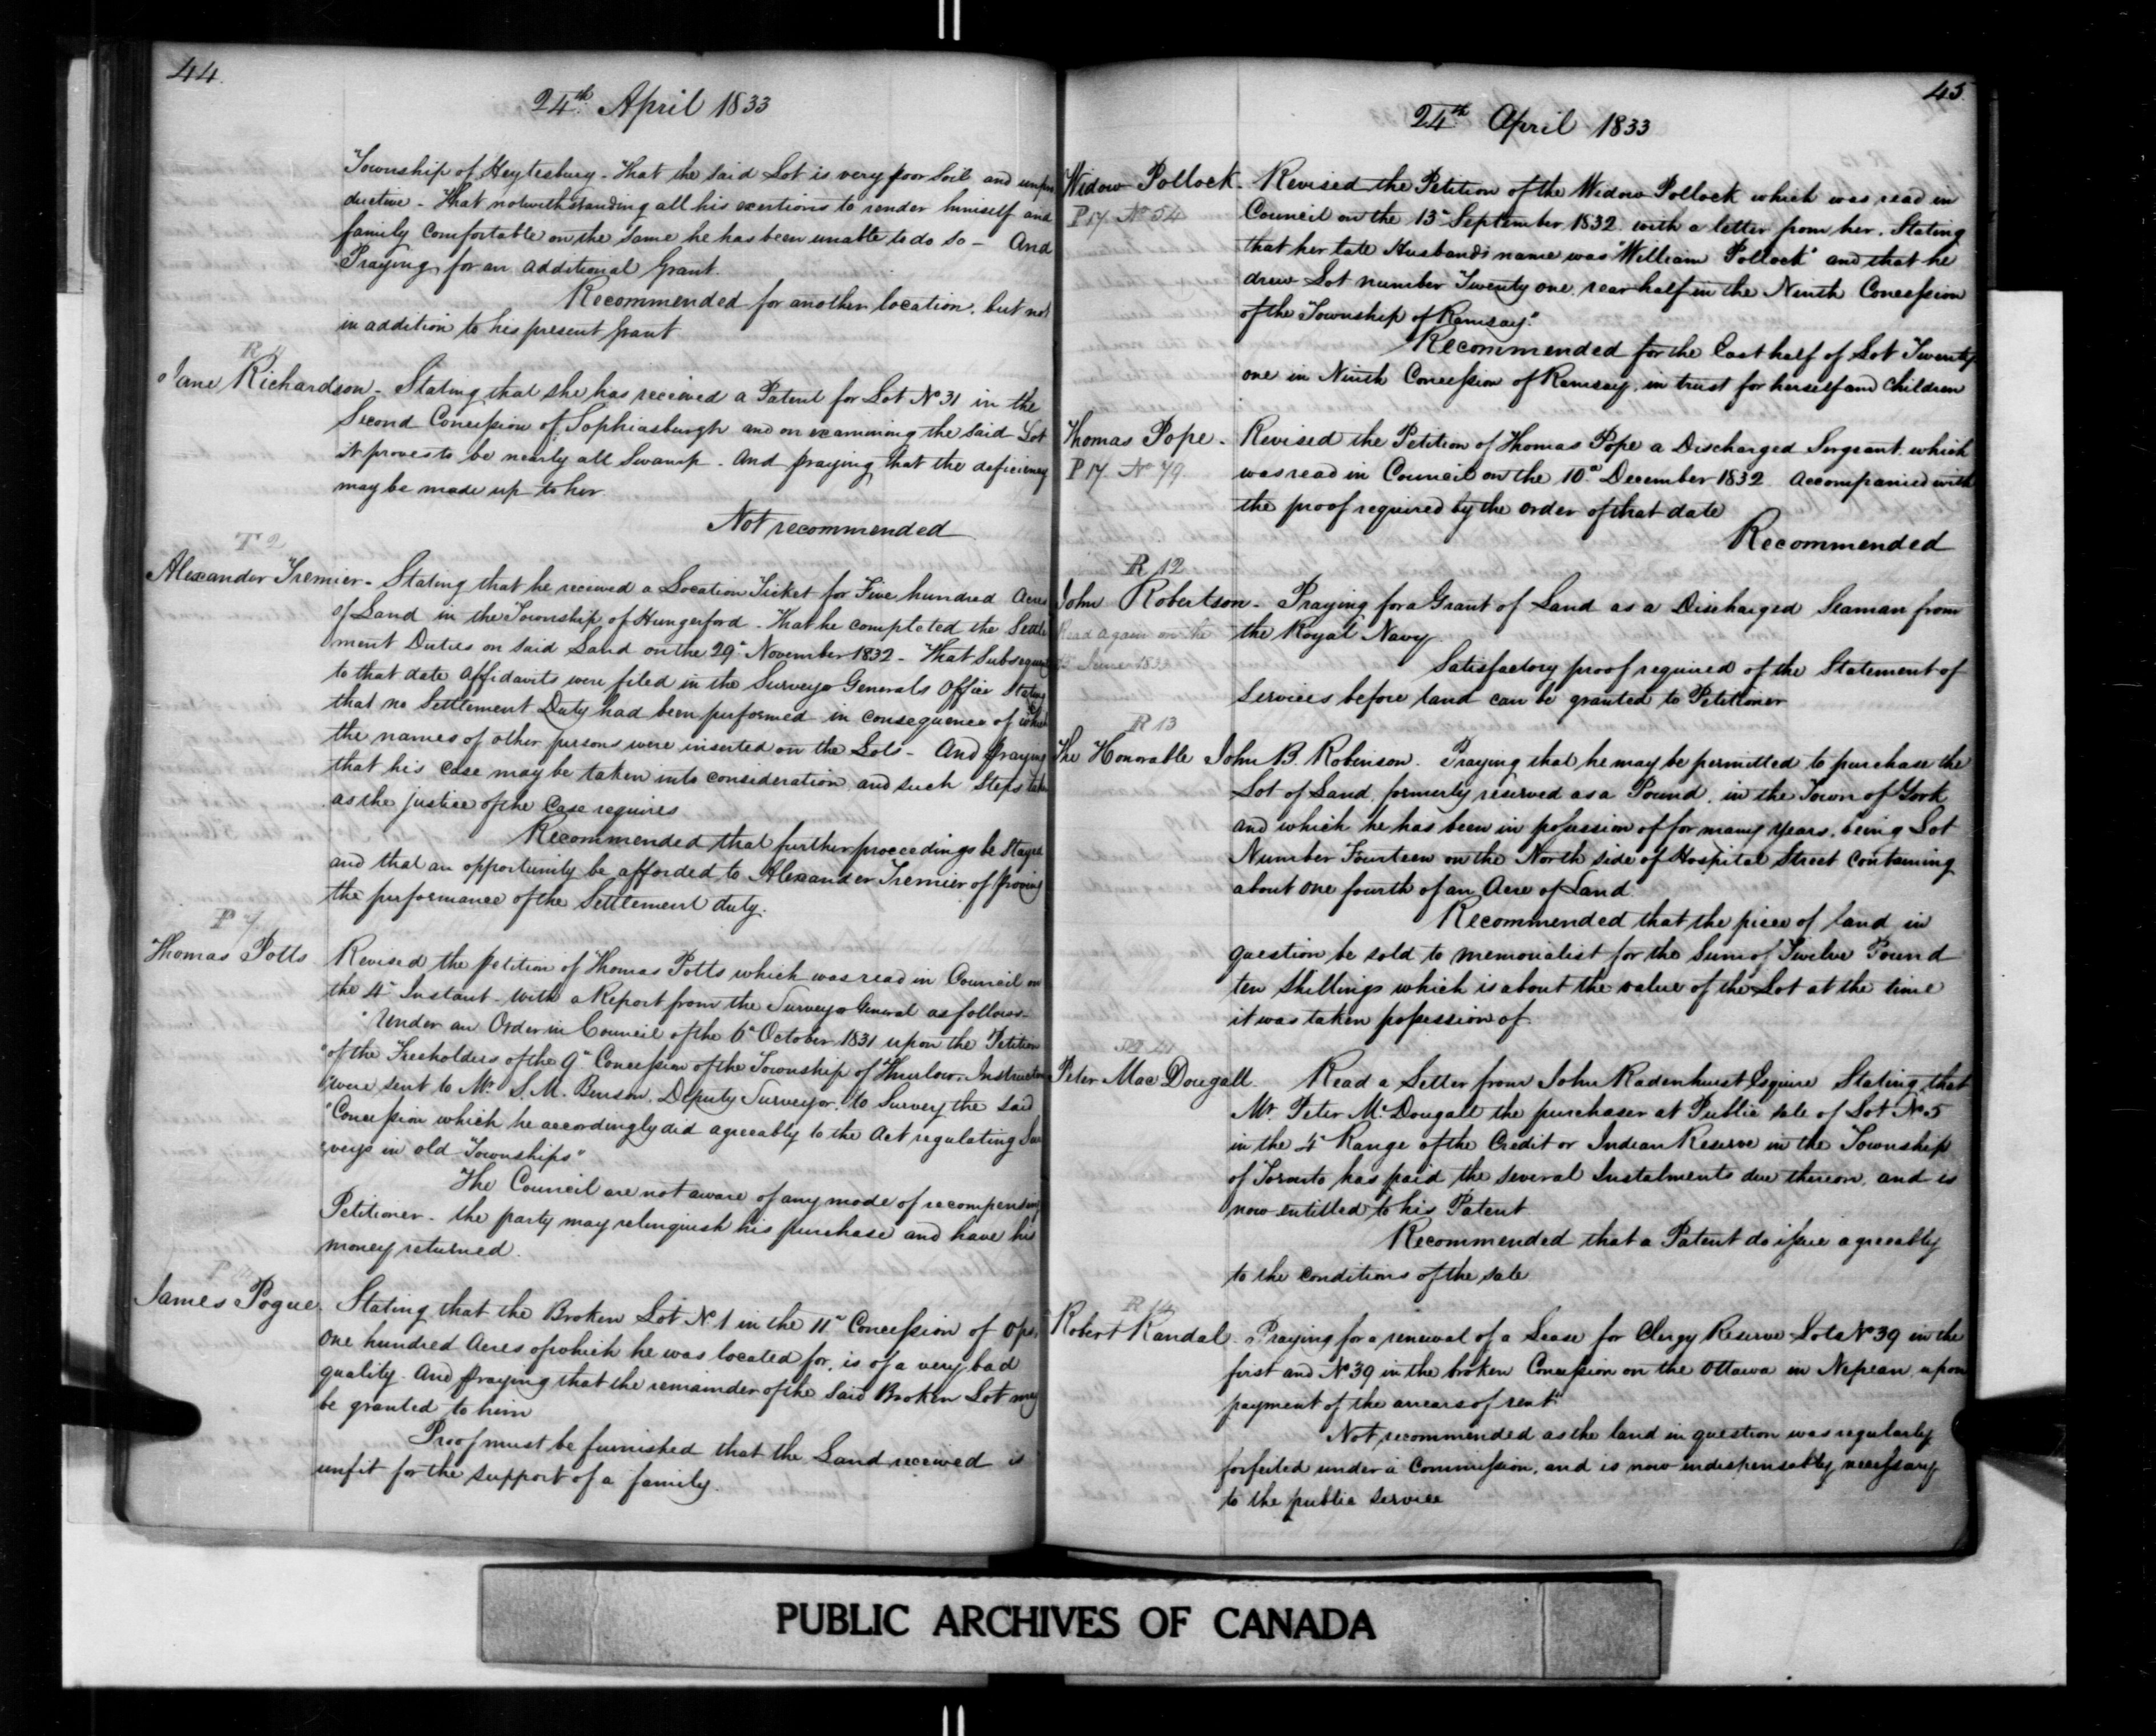 44.
24th April 1833
Township of Heytesbury - That the said Lot is very poor Soil and unpro
ductive - That notwithstanding all his exertions to render himself and
family Comfortable on the same he has been unable to do so - And
Praying for an additional Grant.
Recommended for another location, but not
in addition to his present grant
R 11
Jane Richardson - Stating that she has received a Patent for Lot No 31 in the
Second Concession of Sophiasburgh and on examining the said Lot
it proves to be nearly all Swamp. And praying that the deficiency
may be made up to her.
Not recommended
T 2
Alexander Tremier - Stating that he received a Location Ticket for Five hundred Acres
of Land in the Township of Hungerford - That he completed the Settle
ment Duties on said Land on the 29th November 1832 - That Subsequent
to that date affidavits were filed in the Surveyor Generals Office Stating
that no Settlement Duty had been performed in consequence of which
the names of other persons were inserted on the Lots - And praying
that his Case may be taken into consideration and such Steps taken
as the justice of the Case requires
Recommended that further proceedings be Stayed
and that an opportunity be afforded to Alexander Tremier of proving
the performance of the Settlement duty.
P 7
Thomas Potts Revised the petition of Thomas Potts which was read in Council on
the 4th Instant - With a Report from the Surveyor General as follows -
"Under an Order in Council of the 6th October 1831 upon the Petition
"of the Freeholders of the 9th Concession of the Township of Thurlow, Instructions
"were sent to Mr. S. M. Benson, Deputy Surveyor, to Survey the said
"Concession which he accordingly did agreeably to the Act regulating Sur
"veys in old Townships"
The Council are not aware of any mode of recompensing
Petitioner - the party may relinquish his purchase and have his
money returned.
P
James Pogue. Stating that the Broken Lot No 1 in the 11th Concession of Ops,
One hundred Acres of which he was located for, is of a very bad
quality. And praying that the remainder of the Said Broken Lot may
be granted to him
Proof must be furnished that the Land received is
unfit for the support of a family.
45.
24th April 1833
Widow Pollock. Revised the Petition of the Widow Pollock which was read in
P 17 No 54 Council on the 13th September 1832 with a letter from her, Stating
that her late Husbands name was "William Pollock" and that he
drew Lot number Twenty one, rear half in the Ninth Concession
of the Township of Ramsay."
Recommended for the East half of Lot Twenty
one in Ninth Concession of Ramsay, in trust for herself and Children
Thomas Pope. Revised the Petition of Thomas Pope a Discharged Sergeant, which
P 17 No 79 was read in Council on the 10th December 1832 Accompanied with
the proof required by the order of that date
Recommended
R 12
John Robertson. Praying for a Grant of Land as a Discharged Seaman from
Read again on the the Royal Navy
June 183
Satisfactory proof required of the Statement of
Services before land can be granted to Petitioner
R 13
The Honorable John B. Robinson. Praying that he may be permitted to purchase the
Lot of Land, formerly reserved as a Pound, in the Town of York
and which he has been in possession of for many years, being Lot
Number Fourteen on the North side of Hospital Street Containing
about one fourth of an Acre of Land.
Recommended that the piece of land in
question be sold to memorialist for the Sum of Twelve Pound
ten Shillings which is about the value of the Lot at the time
it was taken possession of
Peter Mac Dougall Read a Letter from John Radenhurst Esquire Stating that
Mr. Peter McDougall the purchaser at Public sale of Lot No 5
in the 4th Range of the Credit or Indian Reserve in the Township
of Toronto has paid the several Instalments due thereon, and is
now entitled to his Patent
Recommended that a Patent do issue agreeably
to the conditions of the sale
R 14
Robert Randal. Praying for a renewal of a Lease for Clergy Reserve Lots No 39 in the
first and No 39 in the broken Concession on the Ottawa in Nepean, upon
payment of the arrears of rent.
Not recommended as the land in question was regularly
forfeited under a Commission, and is now indispensably necessary
to the public service
PUBLIC ARCHIVES OF CANADA